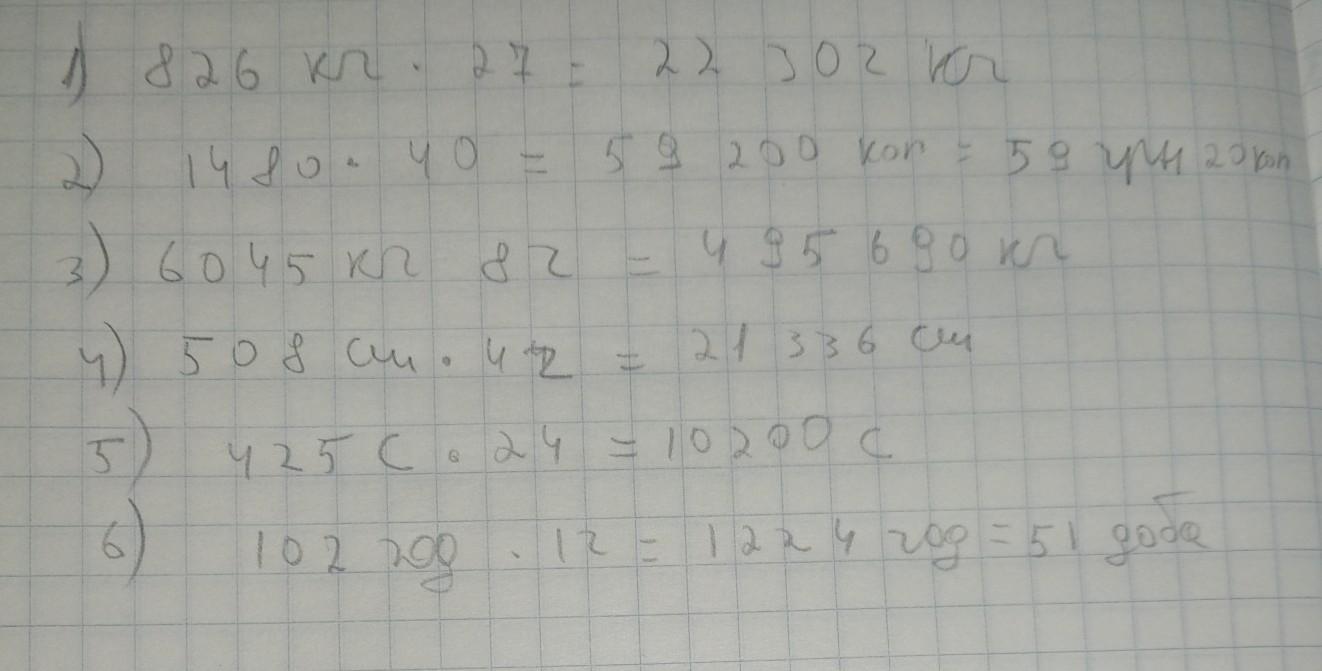 1) 826 кг · 27 = 22 302 кг
2) 1480 · 40 = 59 200 коп = 59 грн 20 коп
3) 6045 кг 82 = 495 690 кг
4) 508 см · 42 = 21 336 см
5) 425 с · 24 = 10200 с
6) 102 год · 12 = 1224 год = 51 доба